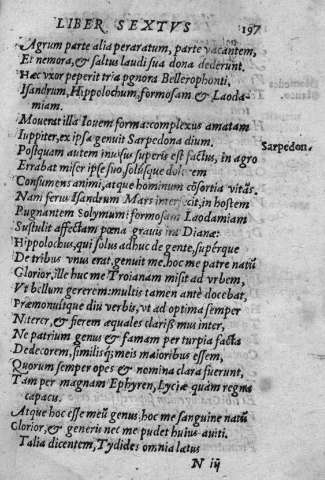 LIBER SEXTVS 197
Agrum parte alia peraratum, parte vacantem,
Et nemora, & saltus laudi sua dona dederunt.
Hæc vxor peperit tria pgnora Bellerophonti,
Isandrum, Hippolochum, formosam & Laoda-
miam.
Mouerat illa Iouem forma: complexus amatam
Iuppiter, ex ipsa genuit Sarpedona dium.
Sarpedon.
Postquam autem inuisus superis est factus, in agro
Errabat miser ipse suo, solusque dolorem
Consumens animi, atque hominum cōsortia vitās.
Nam ferus Isandrum Mars interfecit, in hostem
Pugnantem Solymum: formosam Laodamiam
Sustulit affectam pœna grauis ira Dianæ:
Hippolochus, qui solus adhuc de gente, supérque
De tribus vnus erat, genuit me, hoc me patre natū
Glorior, ille huc me Troianam misit ad vrbem,
Vt bellum gererem: multis tamen antè docebat,
Præmonuitque diu verbis, vt ad optima semper
Niterer, & fierem æquales clariss mus inter,
Ne patrium genus & famam per turpia facta
Dedecorem, similisq; meis maioribus essem,
Quorum semper opes & nomina clara fuerunt,
Tam per magnam Ephyren, Lyciæ quàm regna
capacis.
Atque hoc esse meū genus: hoc me sanguine natū
Glorior, & generis nec me pudet huius auiti.
Talia dicentem, Tydides omnia lætus
N iij